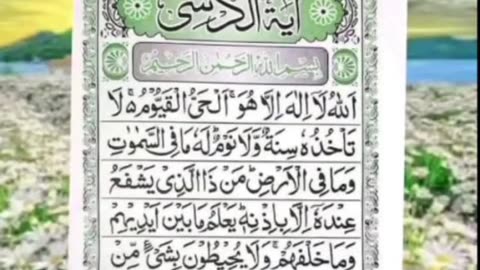 اٰیَةُ الْکُرْسِی
بِسْمِ اللّٰهِ الرَّحْمٰنِ الرَّحِیْمِ
اَللّٰهُ لَاۤ اِلٰهَ اِلَّا هُوَ ۚ اَلْحَیُّ الْقَیُّوْمُ ۚ لَا
تَاْخُذُهٗ سِنَةٌ وَّلَا نَوْمٌ ؕ لَهٗ مَا فِی السَّمٰوٰتِ
وَمَا فِی الْاَرْضِ ؕ مَنْ ذَا الَّذِیْ یَشْفَعُ
عِنْدَهٗۤ اِلَّا بِاِذْنِهٖ ؕ یَعْلَمُ مَا بَیْنَ اَیْدِیْهِمْ
وَمَا خَلْفَهُمْ ۚ وَلَا یُحِیْطُوْنَ بِشَیْءٍ مِّنْ